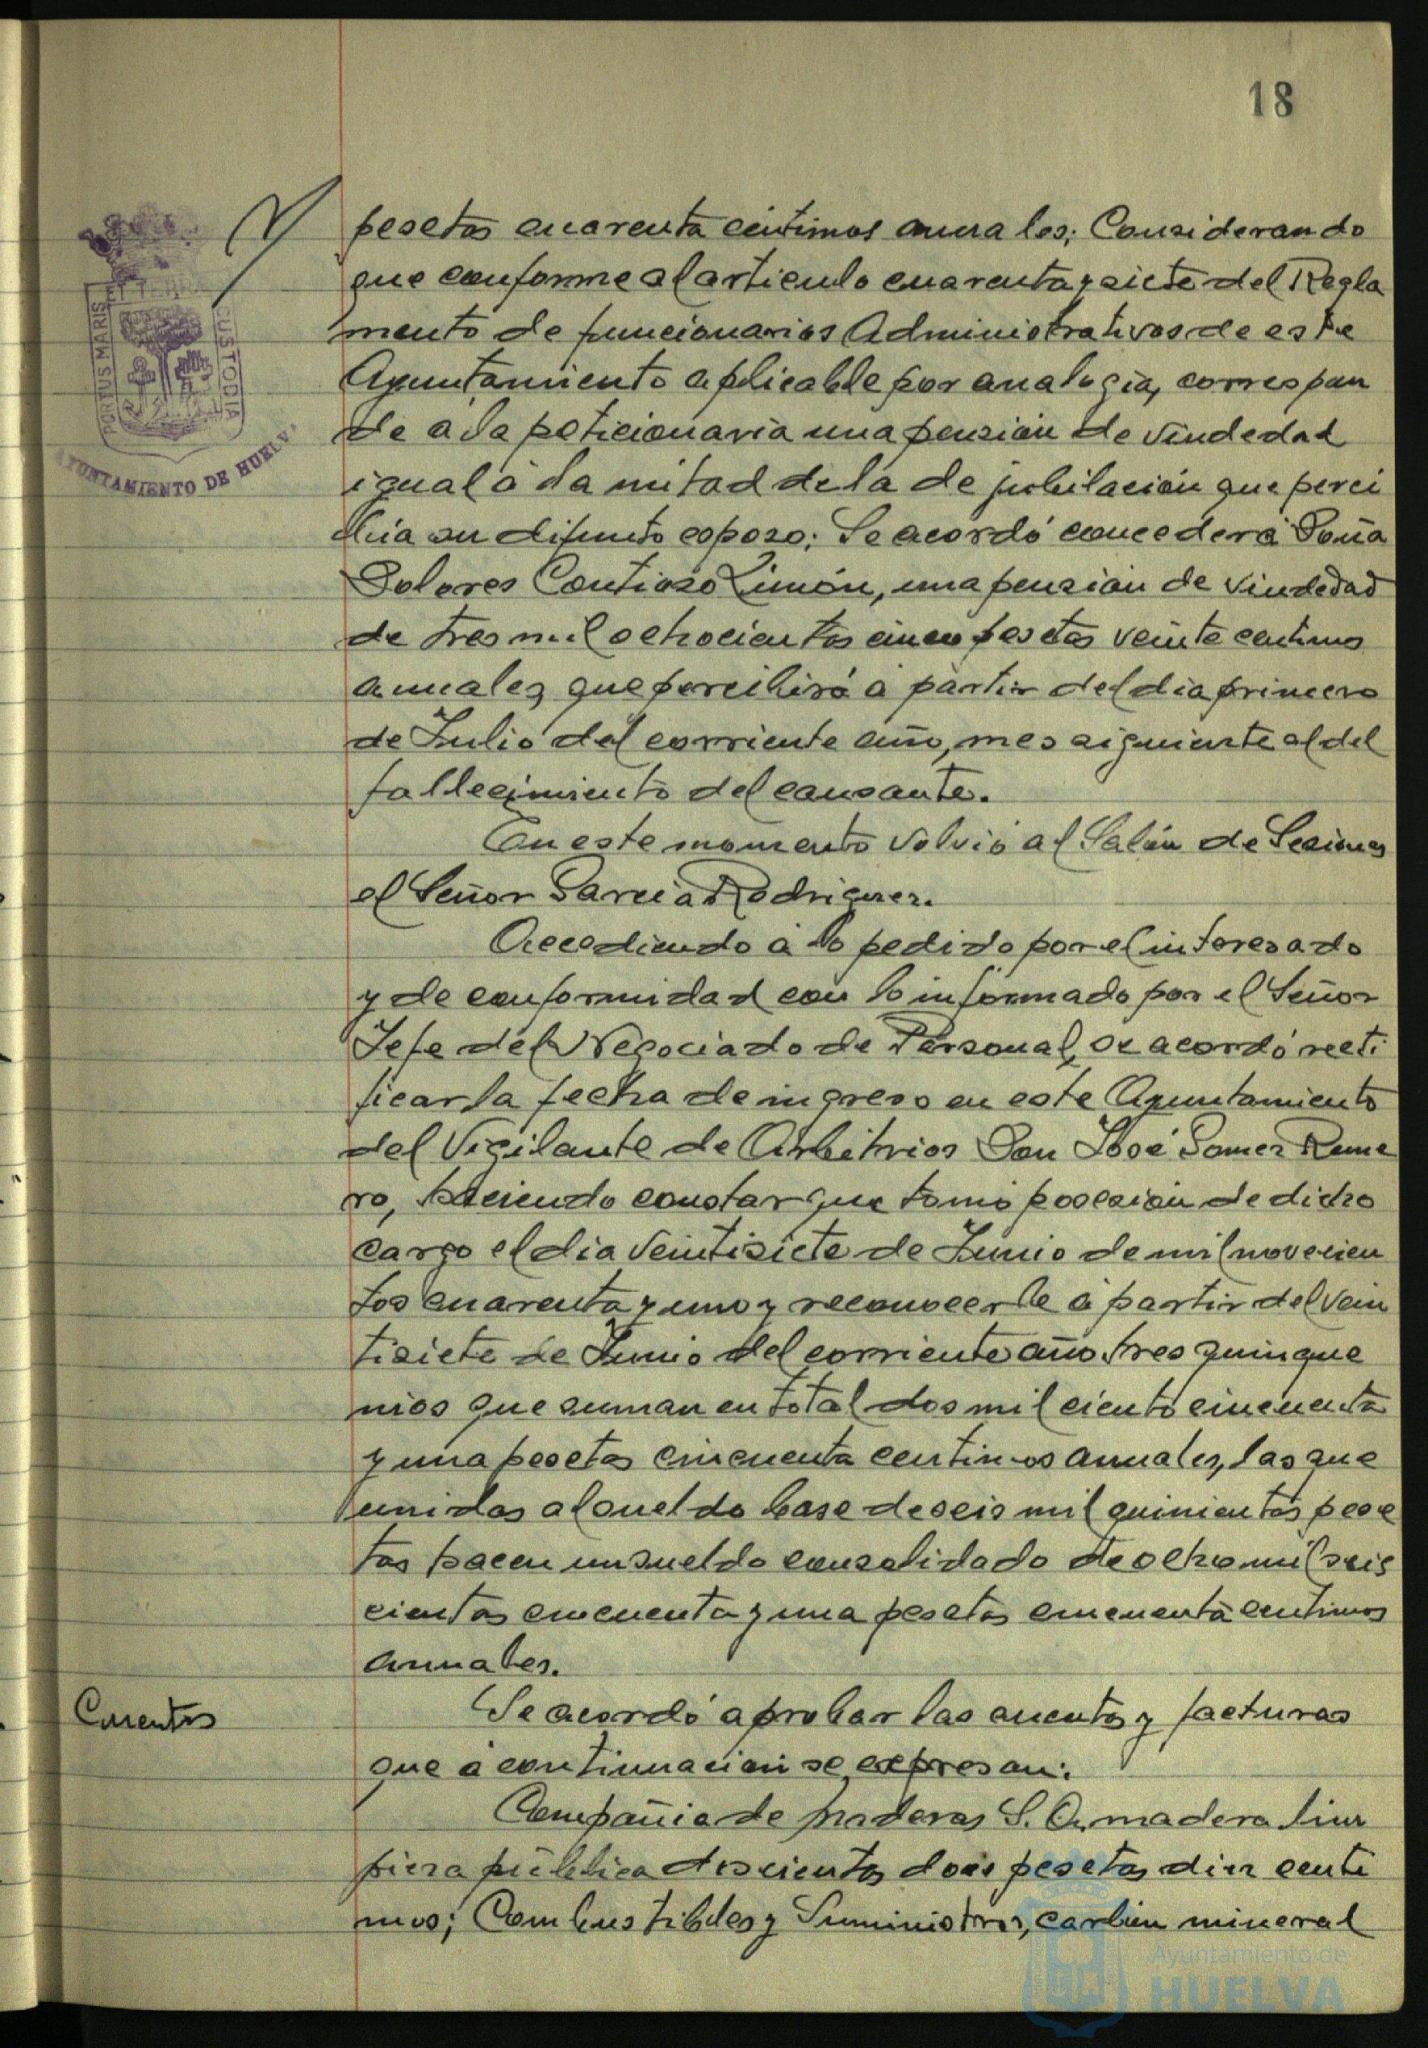 18
pesetas cuarenta céntimos anuales; Considerando
que conforme al articulo cuarenta y siete del Regla
mento de funcionarios Administrativos de este
Ayuntamiento aplicable por analogia, correspon
de a la peticionaria una pensión de viudedad
igual á la mitad de la de jubilación que perci
bia su difunto esposo; Se acordó conceder á Doña
Dolores Contioso Limón, una pensión de viudedad
de tres mil ochocientas cinco pesetas veinte centimos
anuales, que percibirá á partir del dia primero
de Julio del corriente año, mes siguiente al del
fallecimiento del causante.
En este momento volvió al Salón de Sesiones
el Señor Garcia Rodriguez.
Accediendo á lo pedido por el interesado
y de conformidad con lo informado por el Señor
Jefe del Negociado de Personal, se acordó recti
ficar la fecha de ingreso en este Ayuntamiento
del Vigilante de Arbitrios Don José Gomez Rome
ro, haciendo constar que tomó posesión de dicho
cargo el dia veintisiete de Junio de mil novecien
tos cuarenta y uno y reconocerle á partir del vein
tisiete de Junio del corriente año tres quinque
nios que suman en total dos mil ciento cincuenta
y una pesetas cincuenta centimos anuales, las que
unidas al sueldo base de seis mil quinientas pese
tas hacen un sueldo consolidado de ocho mil seis
cientas cincuenta y una pesetas cincuenta centimos
anuales.
Cuentas
Se acordó aprobar las cuentas y facturas
que á continuación se expresan:
Compañia de maderas S. A. madera lim
pieza pública doscientas dos pesetas diez centi
mos; Combustibles y Suministros, carbón mineral
PORTUS MARIS ET TERRA CUSTODIA
AYUNTAMIENTO DE HUELVA
Ayuntamiento de
HUELVA